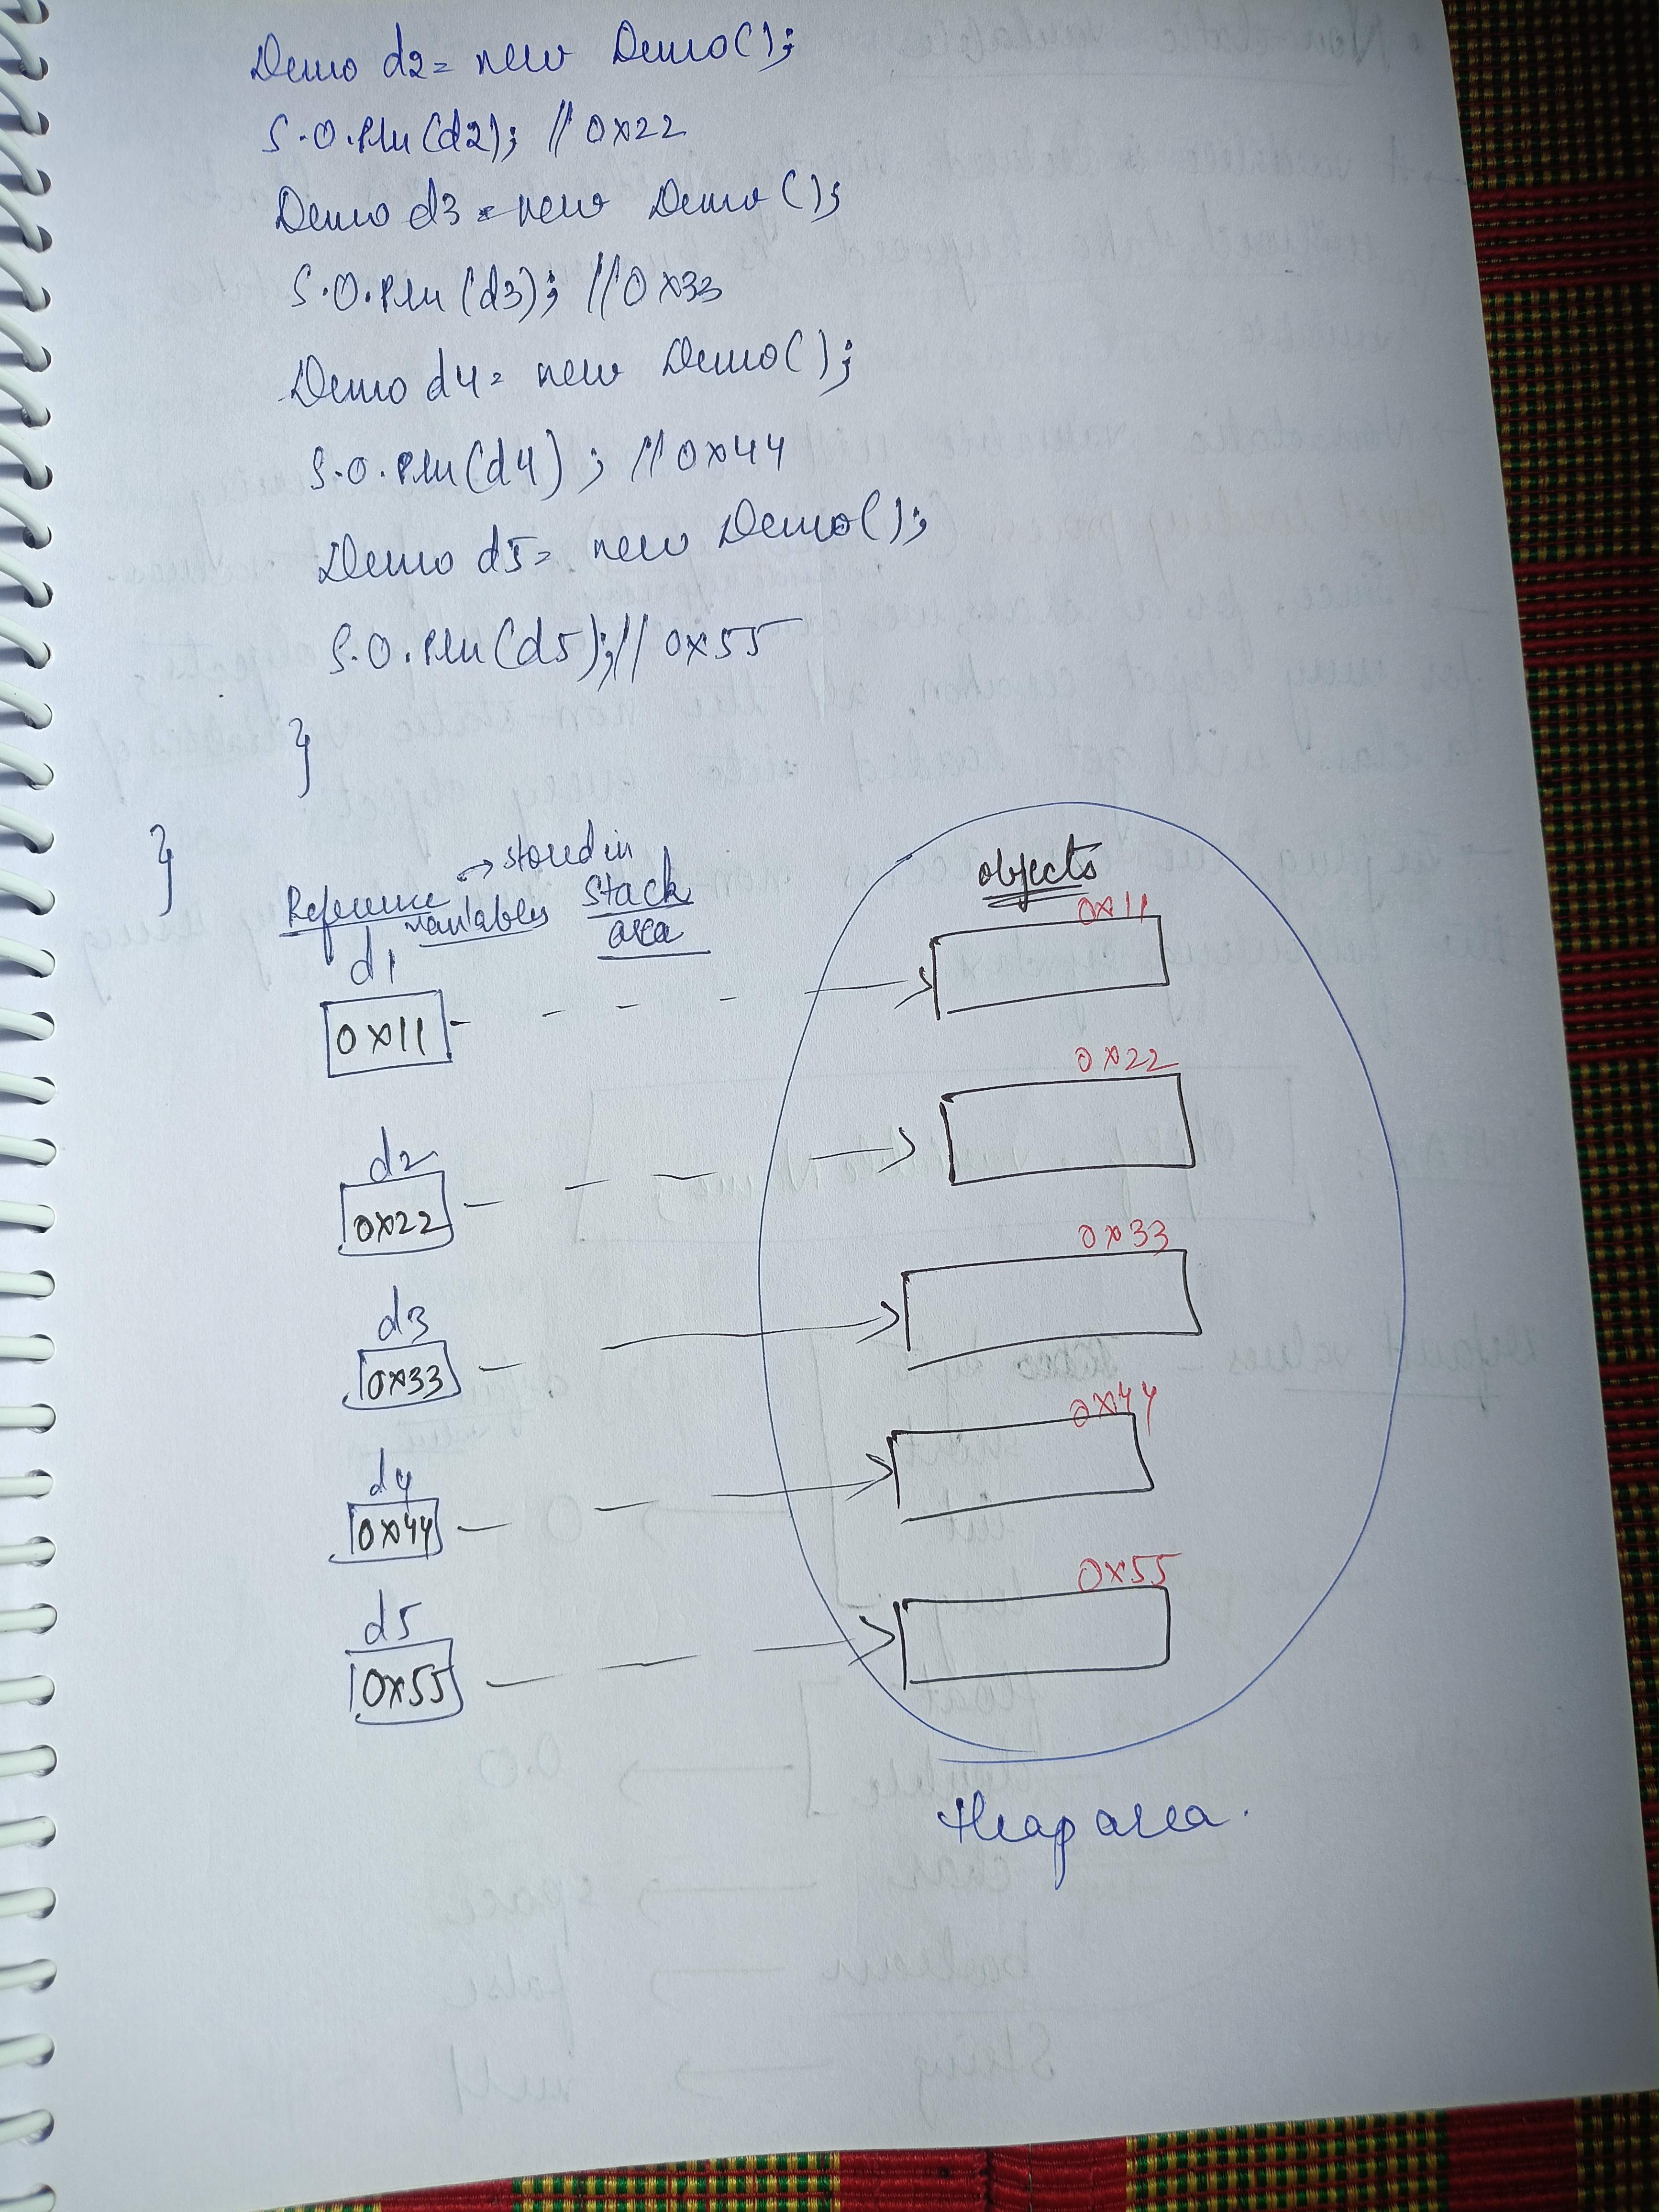 Demo d2= new Demo();
S.O.Pln(d2); // 0x22
Demo d3 = new Demo();
S.O.Pln(d3); //0x33
Demo d4= new Demo();
S.O.Pln(d4); // 0x44
Demo d5= new Demo();
S.O.Pln(d5);// 0x55
}
}
Reference variables → stored in Stack area
objects
d1
0x11
0x11
d2
0x22
0x22
d3
0x33
0x33
d4
0x44
0x44
d5
0x55
0x55
Heap area.